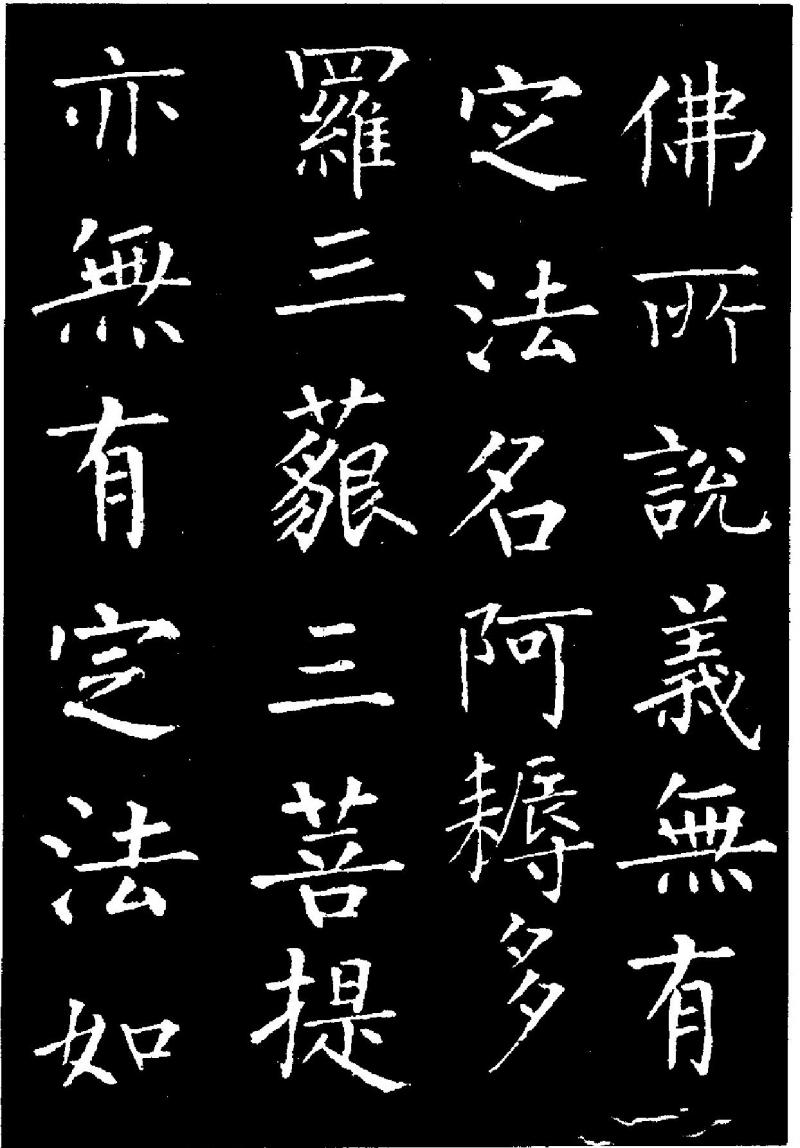 佛所說義無有
定法名阿耨多
羅三藐三菩提
亦無有定法如